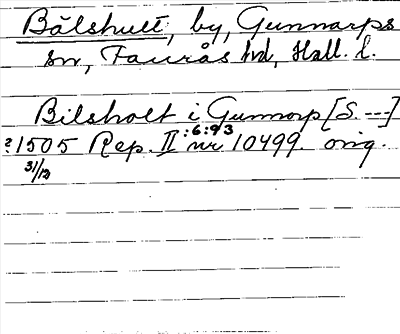 Bälshult, by, Gunnarps
sn, Faurås hd, Hall. l.
Bilsholt i Gunnorp [S. ---]
?1505 Rep. II :6:93 nr 10499. orig.
31/12